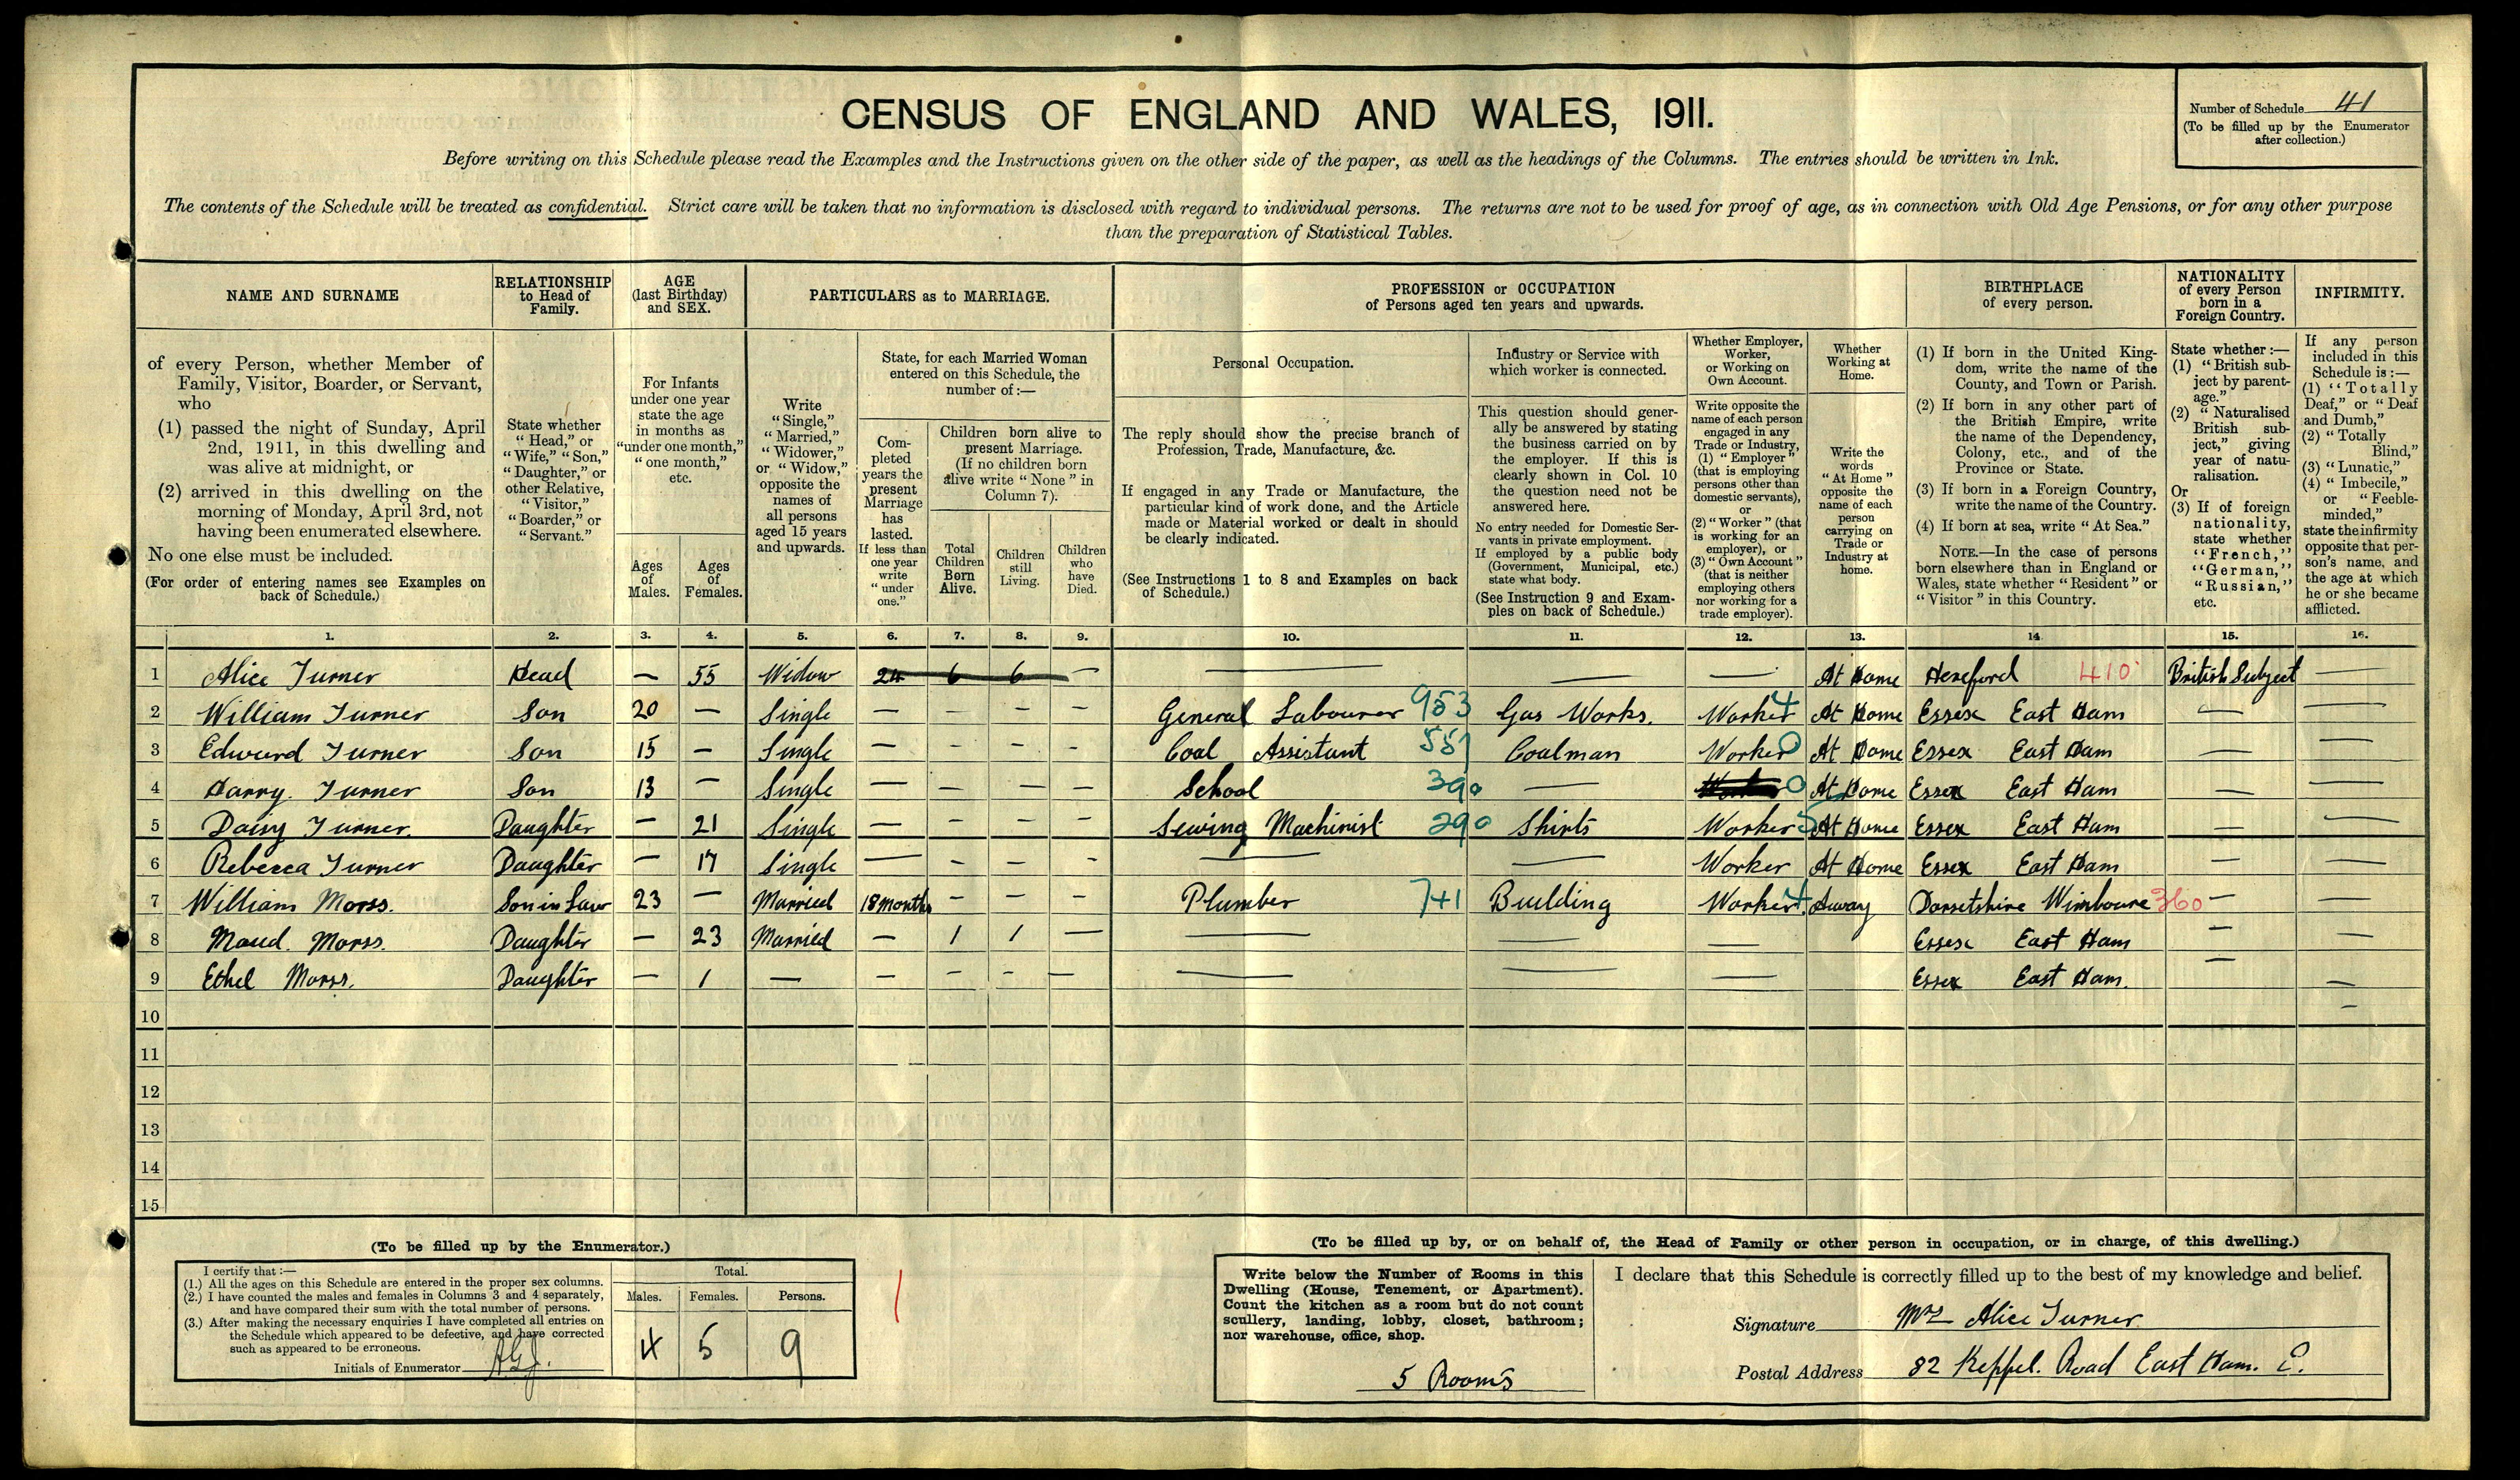 CENSUS OF ENGLAND AND WALES, 1911.
Number of Schedule 41
(To be filled up by the Enumerator after collection.)
Before writing on this Schedule please read the Examples and the Instructions given on the other side of the paper, as well as the headings of the Columns. The entries should be written in Ink.
The contents of the Schedule will be treated as confidential. Strict care will be taken that no information is disclosed with regard to individual persons. The returns are not to be used for proof of age, as in connection with Old Age Pensions, or for any other purpose
than the preparation of Statistical Tables.
NAME AND SURNAME
of every Person, whether Member of
Family, Visitor, Boarder, or Servant,
who
(1) passed the night of Sunday, April
2nd, 1911, in this dwelling and
was alive at midnight, or
(2) arrived in this dwelling on the
morning of Monday, April 3rd, not
having been enumerated elsewhere.
No one else must be included.
(For order of entering names see Examples on
back of Schedule.)
RELATIONSHIP
to Head of
Family.
State whether
"Head," or
"Wife," "Son,"
"Daughter," or
other Relative,
"Visitor,"
"Boarder," or
"Servant."
AGE
(last Birthday)
and SEX.
For Infants
under one year
state the age
in months as
"under one month,"
"one month,"
etc.
Ages
of
Males.
Ages
of
Females.
PARTICULARS as to MARRIAGE.
Write
"Single,"
"Married,"
"Widower,"
or "Widow,"
opposite the
names of
all persons
aged 15 years
and upwards.
State, for each Married Woman
entered on this Schedule, the
number of :—
Com-
pleted
years the
present
Marriage
has
lasted.
If less than
one year
write
"under
one."
Children born alive to
present Marriage.
(If no children born
alive write "None" in
Column 7).
Total
Children
Born
Alive.
Children
still
Living.
Children
who
have
Died.
PROFESSION or OCCUPATION
of Persons aged ten years and upwards.
Personal Occupation.
The reply should show the precise branch of
Profession, Trade, Manufacture, &c.
If engaged in any Trade or Manufacture, the
particular kind of work done, and the Article
made or Material worked or dealt in should
be clearly indicated.
(See Instructions 1 to 8 and Examples on back
of Schedule.)
Industry or Service with
which worker is connected.
This question should gener-
ally be answered by stating
the business carried on by
the employer. If this is
clearly shown in Col. 10
the question need not be
answered here.
No entry needed for Domestic Ser-
vants in private employment.
If employed by a public body
(Government, Municipal, etc.)
state what body.
(See Instruction 9 and Exam-
ples on back of Schedule.)
Whether Employer,
Worker,
or Working on
Own Account.
Write opposite the
name of each person
engaged in any
Trade or Industry,
(1) "Employer"
(that is employing
persons other than
domestic servants),
or
(2) "Worker" (that
is working for an
employer), or
(3) "Own Account"
(that is neither
employing others
nor working for a
trade employer).
Whether
Working at
Home.
Write the
words
"At Home"
opposite the
name of each
person
carrying on
Trade or
Industry at
home.
BIRTHPLACE
of every person.
(1) If born in the United King-
dom, write the name of the
County, and Town or Parish.
(2) If born in any other part of
the British Empire, write
the name of the Dependency,
Colony, etc., and of the
Province or State.
(3) If born in a Foreign Country,
write the name of the Country.
(4) If born at sea, write "At Sea."
NOTE.—In the case of persons
born elsewhere than in England or
Wales, state whether "Resident" or
"Visitor" in this Country.
NATIONALITY
of every Person
born in a
Foreign Country.
State whether :—
(1) "British sub-
ject by parent-
age."
(2) "Naturalised
British sub-
ject," giving
year of natu-
ralisation.
Or
(3) If of foreign
nationality,
state whether
"French,"
"German,"
"Russian,"
etc.
INFIRMITY.
If any person
included in this
Schedule is :—
(1) "Totally
Deaf," or "Deaf
and Dumb,"
(2) "Totally
Blind,"
(3) "Lunatic,"
(4) "Imbecile,"
or "Feeble-
minded,"
state the infirmity
opposite that per-
son's name, and
the age at which
he or she became
afflicted.
1. 2. 3. 4. 5. 6. 7. 8. 9. 10. 11. 12. 13. 14 15. 16.
1 Alice Turner Head — 55 Widow 24 6 6 — — — — At Home Hereford 410 British Subject —
2 William Turner Son 20 — Single — — — — General Labourer 953 Gas Works. Worker 4 At Home Essex East Ham — —
3 Edward Turner Son 15 — Single — — — — Coal Assistant 551 Coalman Worker 0 At Home Essex East Ham — —
4 Harry. Turner Son 13 — Single — — — — School 390 — 0 At Home Essex East Ham — —
5 Daisy Turner. Daughter — 21 Single — — — — Sewing Machinist 290 Shirts Worker 5 At Home Essex East Ham — —
6 Rebecca Turner Daughter — 17 Single — — — — — — Worker At Home Essex East Ham — —
7 William Morss. Son in Law 23 — Married 18 months — — — Plumber 741 Building Worker 4 Away Dorsetshire Wimboure 360 — —
8 Maud. Morss. Daughter — 23 Married — 1 1 — — — — Essex East Ham — —
9 Ethel Morss. Daughter — 1 — — — — — — — — Essex East Ham. — —
10 —
11
12
13
14
15
(To be filled up by the Enumerator.)
I certify that :—
(1.) All the ages on this Schedule are entered in the proper sex columns.
(2.) I have counted the males and females in Columns 3 and 4 separately,
and have compared their sum with the total number of persons.
(3.) After making the necessary enquiries I have completed all entries on
the Schedule which appeared to be defective, and have corrected
such as appeared to be erroneous.
Initials of Enumerator AGJ.
Total.
Males. Females. Persons.
4 5 9
(To be filled up by, or on behalf of, the Head of Family or other person in occupation, or in charge, of this dwelling.)
Write below the Number of Rooms in this
Dwelling (House, Tenement, or Apartment).
Count the kitchen as a room but do not count
scullery, landing, lobby, closet, bathroom;
nor warehouse, office, shop.
5 Rooms
I declare that this Schedule is correctly filled up to the best of my knowledge and belief.
Signature Mrs Alice Turner
Postal Address 82 Keppel. Road East Ham. E.